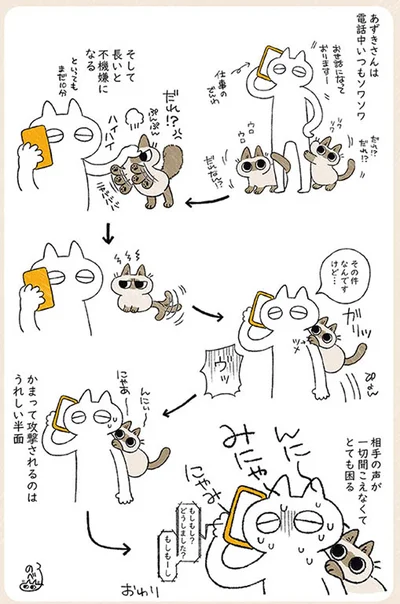 あずきさんは
電話中いつもソワソワ
お世話になって
おりますー
仕事の
でんわ
ソワ
ソワ
だれ!?
だれ!?
ウロ
ウロ
だれなん!?
そして
長いと
不機嫌に
なる
といっても
まだ10分
だれ!?
ぷんぷん
ハイハイ
その件
なんです
けど…
ガリッ
ツメ
ぴょん
ウッ
んにぃー
にゃあー
かまって攻撃されるのは
うれしい半面
相手の声が
一切聞こえなくて
とても困る
んにー
みにゃー
にゃあー
もしもし?
どうしました?
もしもーし
おわり
のべ